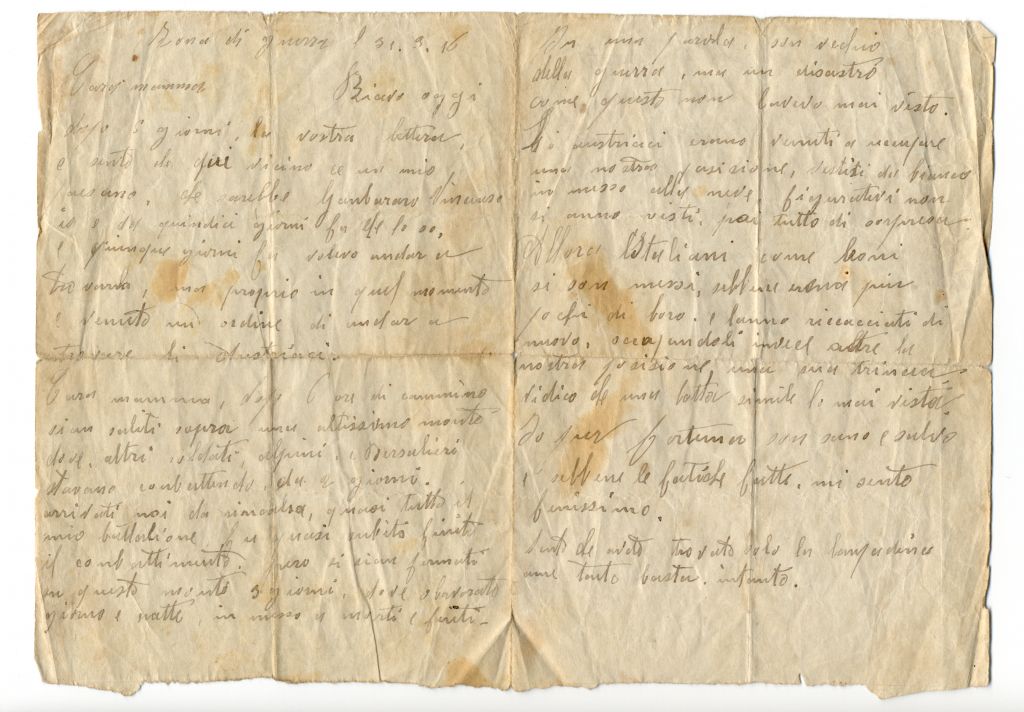 Zona di guerra l 31. 3. 16
Cara mamma
Ricevo oggi
dopo 6 giorni, la vostra lettera,
e sento che qui vicino ce un mio
paesano, che sarebbe Gambararo Vincenso
io e da quindici giorni fa che lo so,
e quinque giorni fa volevo andar a
trovarlo, ma proprio in quel momento
e venuto un ordine di andar a
trovare li Austriaci.
Cara mamma, dopo 6 ore di cammino
sian saliti sopra una altissimo monte
dove altri soldati, alpini, e Bersalieri
stavano conbattendo da 2 giorni.
arrivati noi da rincalsa, quasi tutto il
mio battalione, fu quasi subito finito
il conbattimento. pero si sian fermati
su questo monte 3 giorni, dove o lavorato
giorno e notte, in messo a morti e feriti.
In una parola, son vechio
della guerra, ma un disastro
come questo non lavevo mai visto.
Li austriaci erano venuti a ocupare
una nostra posisione, vestiti da bianco
in messo alla neve, figurativi non
si anno visti, poi tutto di sorpresa.
Allora Italiani come leoni
si son messi, sebbene erano piu
pochi di loro. e lanno riccacciati di
nuovo, ocupandoli invece altre la
nostra posisione, una sua trincea
vidico che una lotta simile lo mai vista.
Io per fortuna son sano e salvo
e sebbene le fatiche fatte, mi sento
benissimo.
Sento che avete trovato solo la lanpadina
ame tanto basta. intanto.